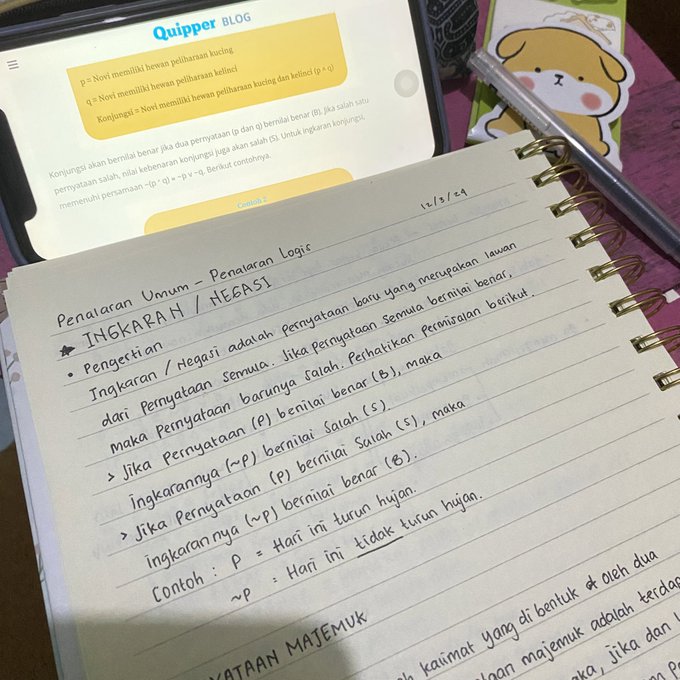 Quipper BLOG
p = Novi memiliki hewan peliharaan kucing
q = Novi memiliki hewan peliharaan kelinci
Konjungsi = Novi memiliki hewan peliharaan kucing dan kelinci (p ∧ q)
Konjungsi akan bernilai benar jika dua pernyataan (p dan q) bernilai benar (B). Jika salah satu
pernyataan salah, nilai kebenaran konjungsi juga akan salah (S). Untuk ingkaran konjungsi,
memenuhi persamaan ~(p ^ q) ≡ ~p v ~q. Berikut contohnya.
Contoh 2
12/3/24
Penalaran Umum - Penalaran Logis
★ INGKARAN / NEGASI
• Pengertian
Ingkaran / Negasi adalah pernyataan baru yang merupakan lawan
dari pernyataan semula. Jika pernyataan semula bernilai benar,
maka pernyataan barunya salah. Perhatikan permisalan berikut.
> Jika pernyataan (P) benilai benar (B), maka
ingkarannya (~P) bernilai salah (S)
> Jika pernyataan (P) bernilai salah (S), maka
ingkarannya (~P) bernilai benar (B).
Contoh : P = Hari ini turun hujan.
~P : Hari ini tidak turun hujan.
YATAAN MAJEMUK
kalimat yang di bentuk oleh dua
majemuk adalah terdap
jika dan